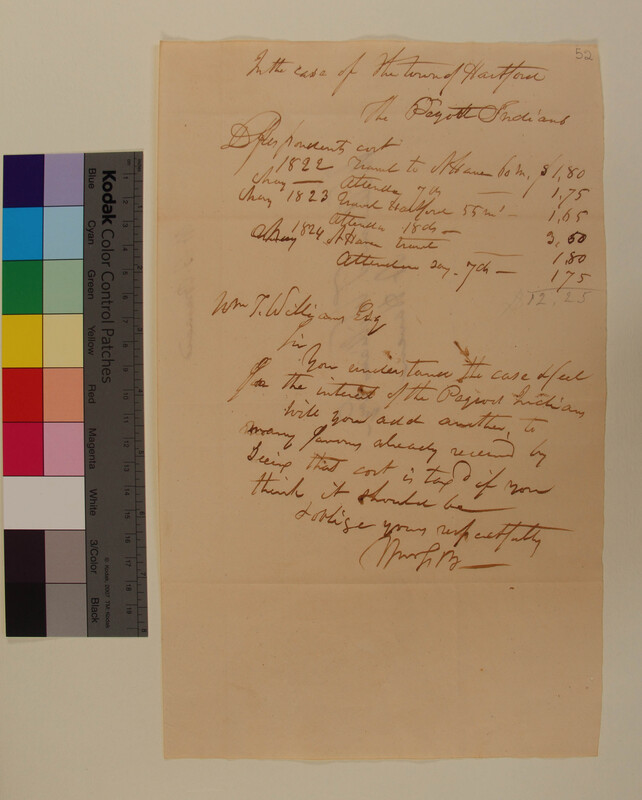 52
In the case of The town of Hartford
The Pequott Indians
Respondents cost
May 1822 Travel to N Haven 60 m, $1,80
— Attenda 7 ds — 1,75
May 1823 Travel Hartford 55 m — 1,65
Attenda 18 ds — 3,50
May 1824 N Haven travel — 1,80
Attendan say 7 ds — 175
12.25
Wm T. Williams Esq
Sir
You understand the case & feel
for the interest of the Pequod Indians
Will you add another, to
many favours already received by
Seeing that cost is taxd if you
think it should be
& oblige yours respectfully
Kodak Color Control Patches
Blue
Cyan
Green
Yellow
Red
Magenta
White
3/Color
Black